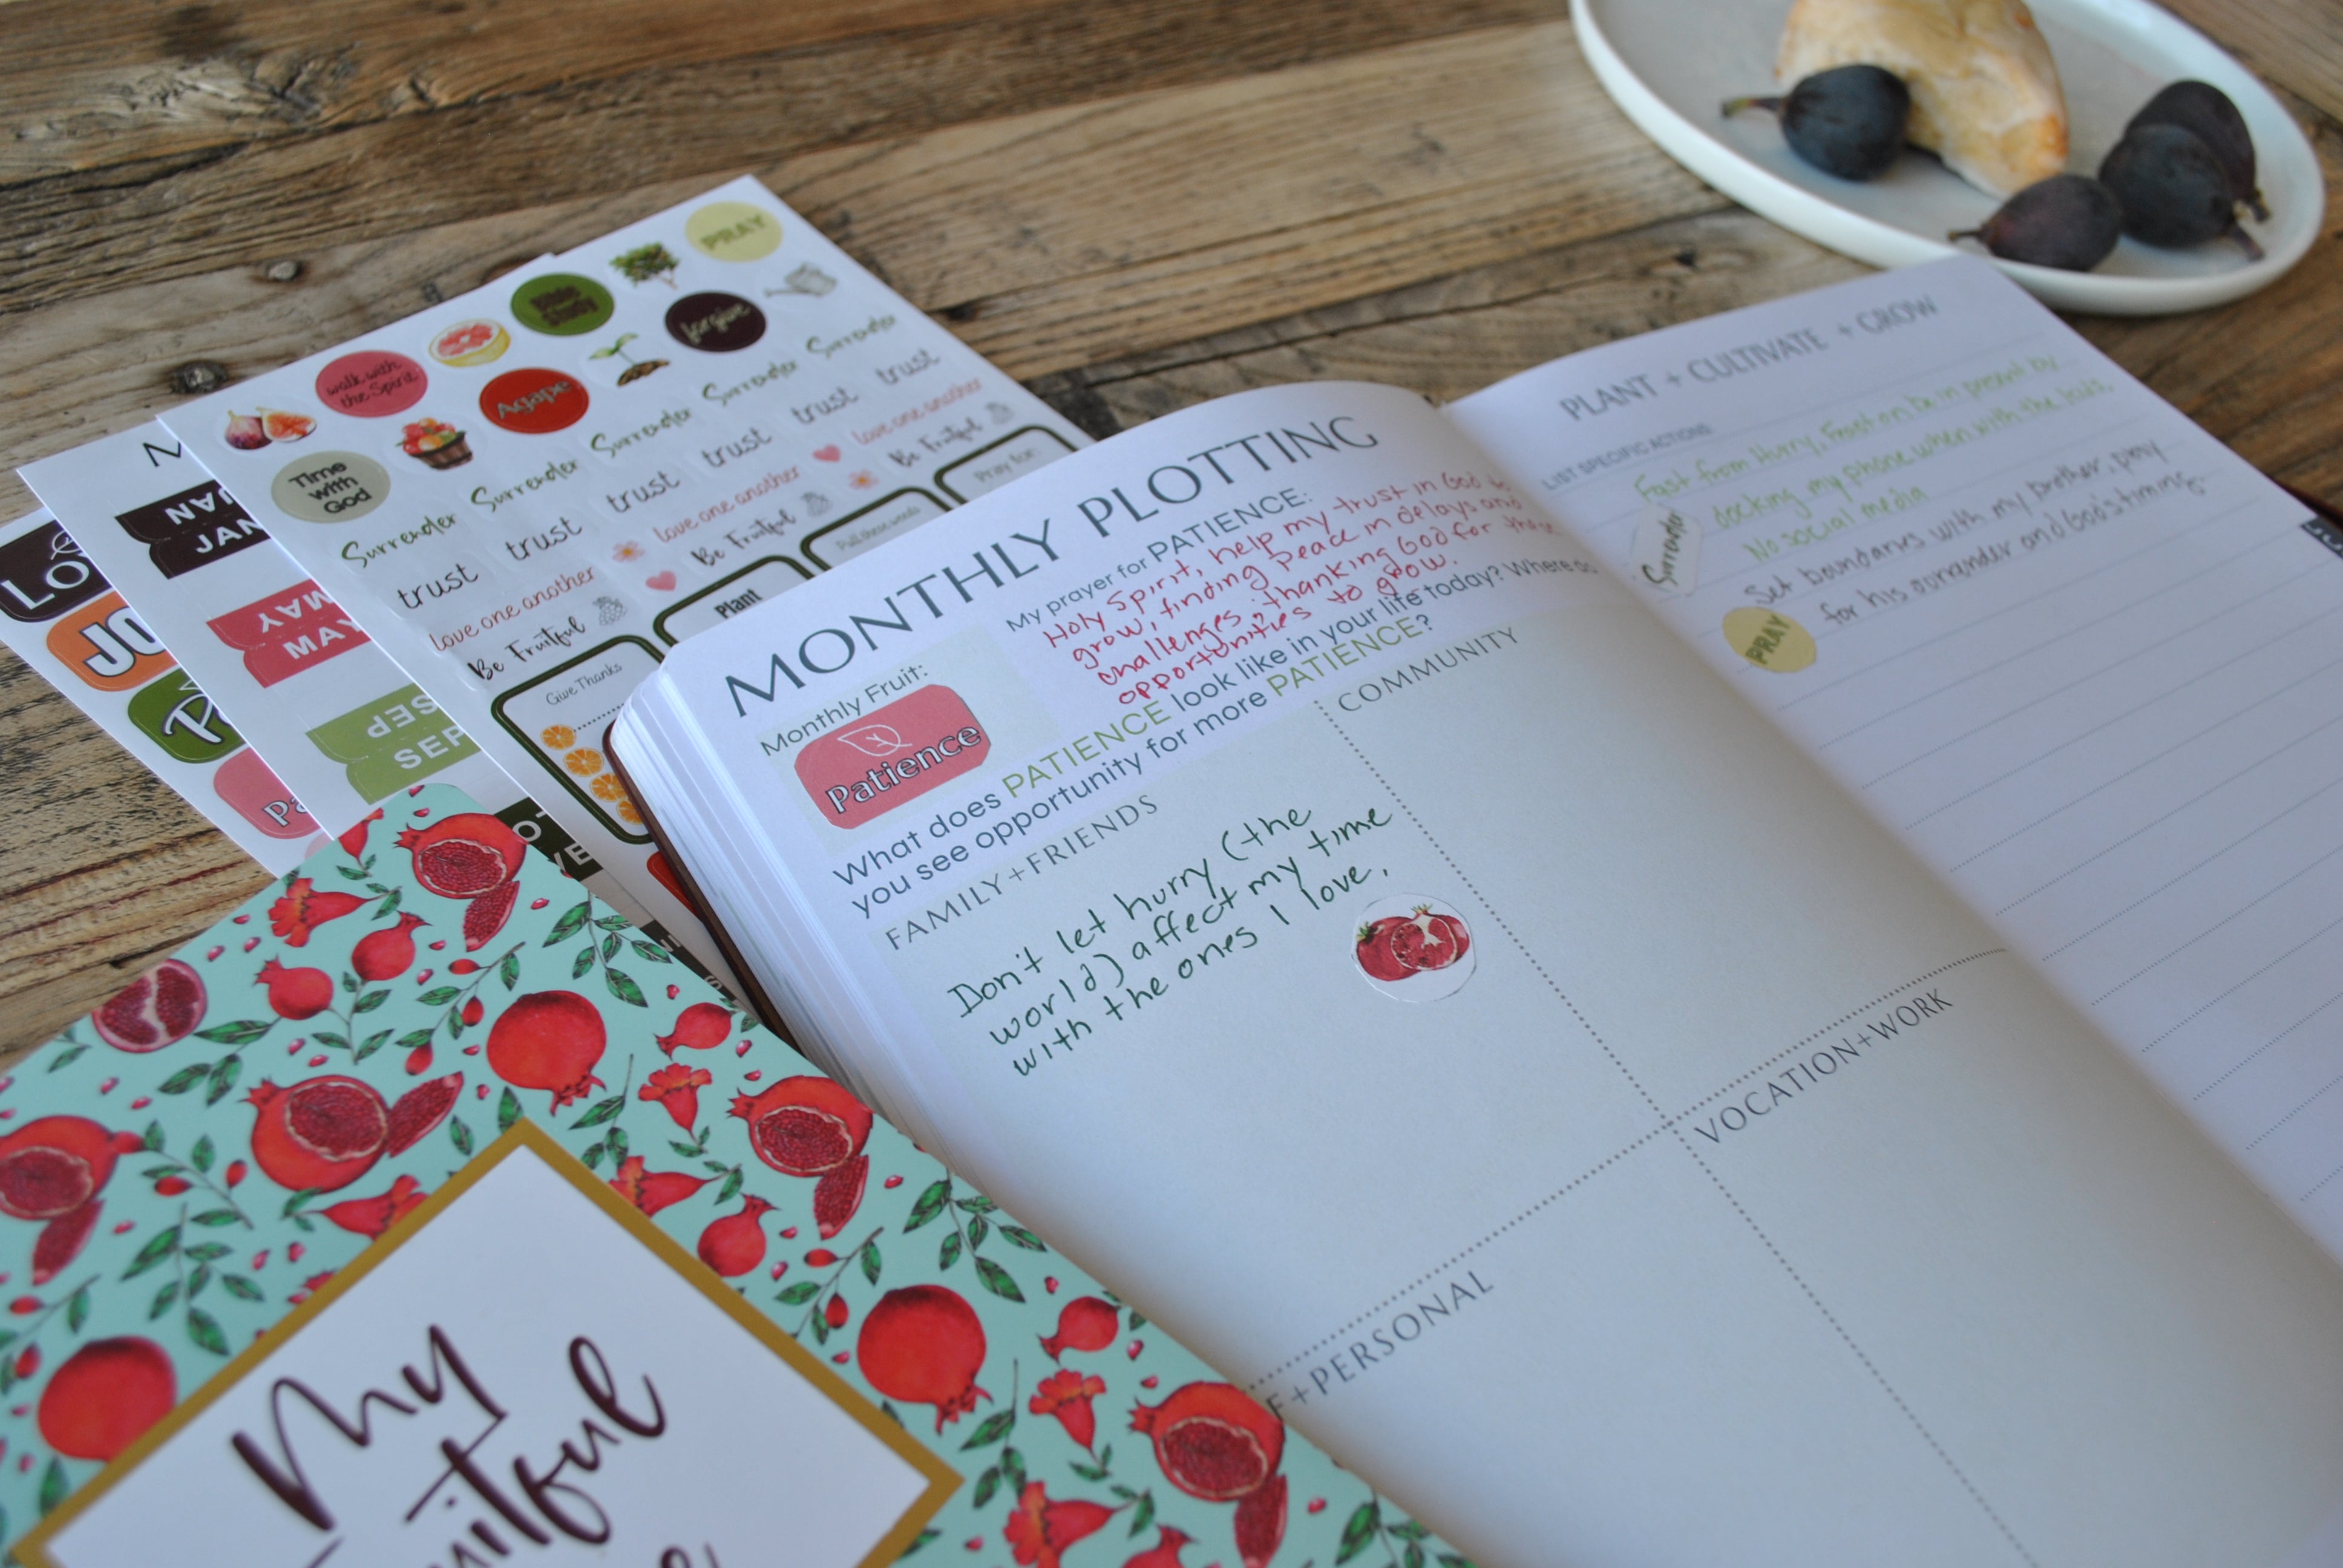 PRAY
Bible
Study
forgive
walk with
the Spirit
Agape
Time
with
God
Surrender Surrender Surrender Surrender Surrender
trust trust trust trust trust trust
love one another love one another love one another
Be Fruitful Be Fruitful Be Fruitful
Give Thanks
Plant
Pull these weeds
Pray for:
LO
JO
P
Pa
M
JAN
JAN
MAY
MAY
SEP
SEP
MONTHLY PLOTTING
Monthly Fruit:
Patience
My prayer for PATIENCE:
Holy Spirit, help my trust in God to
grow, finding peace in delays and
challenges; thanking God for these
opportunities to grow.
What does PATIENCE look like in your life today? Where do
you see opportunity for more PATIENCE?
FAMILY+FRIENDS
Don't let hurry (the
world) affect my time
with the ones I love.
COMMUNITY
VOCATION+WORK
F+PERSONAL
PLANT + CULTIVATE + GROW
LIST SPECIFIC ACTIONS
Fast from Hurry, Feast on be in present by
docking my phone when with the kids.
No social media
Surrender
Set boundaries with my brother, pray
for his surrender and God's timing.
PRAY
My
uitful